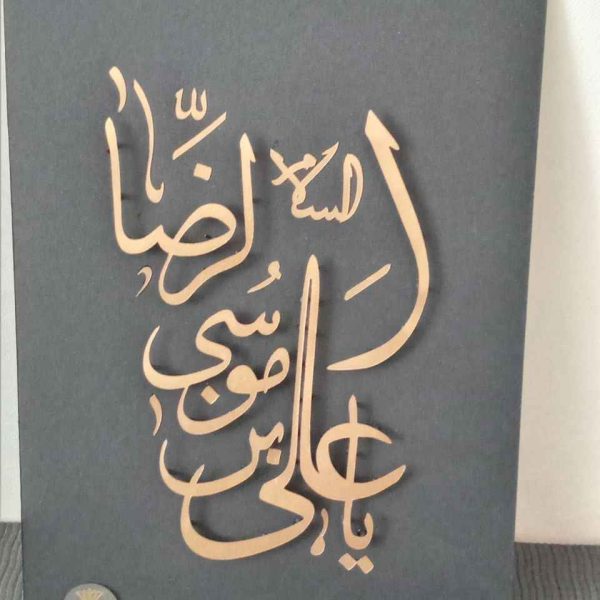 السلام
یا علی
بن
موسی
الرضا